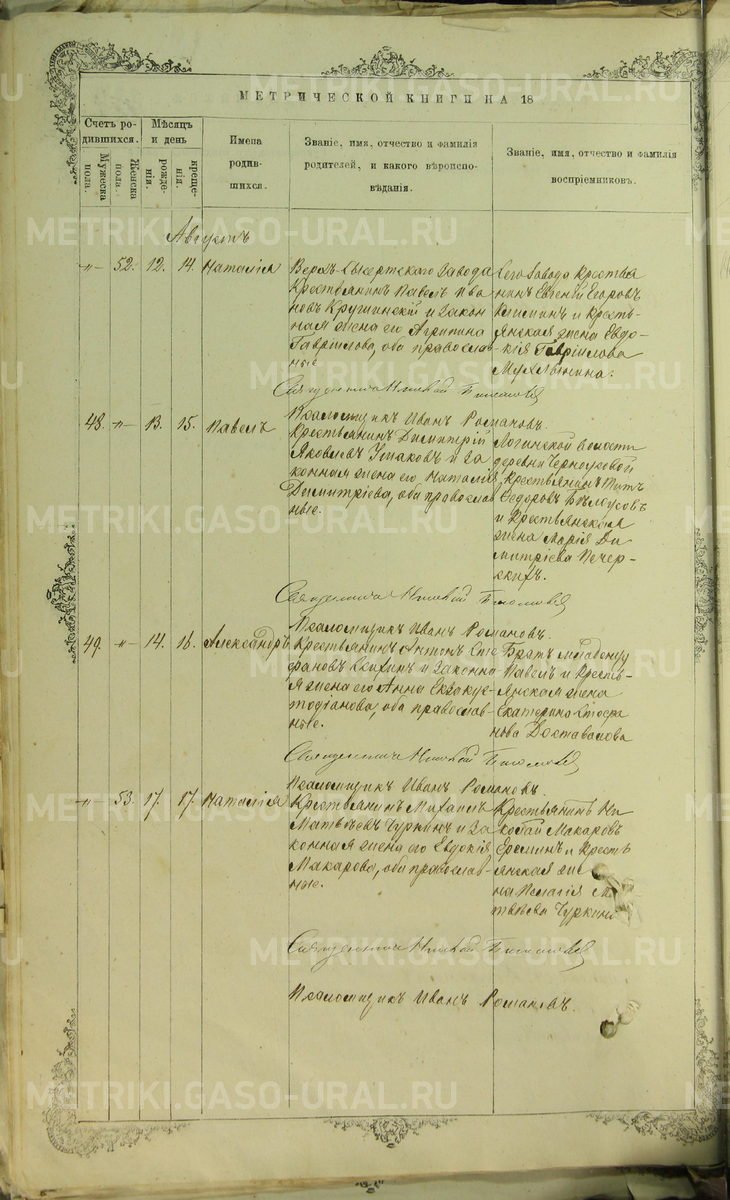 МЕТРИЧЕСКОЙ КНИГИ НА 18
Счетъ родившихся.
Мужеска пола.
Женска пола.
Мѣсяцъ и день
рожденія.
крещенія.
Имена родившихся.
Званіе, имя, отчество и фамилія родителей, и какого вѣроисповѣданія.
Званіе, имя, отчество и фамилія воспріемниковъ.
Августъ
"
52.
12.
14.
Наталія
Верхъ-Сысертскаго завода
Крестьянинъ Павелъ Ива
новъ Крушинскій и закон
ная жена его Агрипина
Гавріилова, оба православ
ные
Сего завода Крестья
нинъ Евгеній Егоровъ
и Кресть-
янская жена Евдо-
кія Гавріилова
Священникъ Николай
Псаломщикъ Иванъ Романовъ.
48.
"
13.
15.
Павелъ
Крестьянинъ Димитрій
Яковлевъ Ушаковъ и за
конная жена его Наталія
Димитріева, оба православ
ные.
волости
деревни Черноусовой
Крестьянинъ Титъ
Ѳедоровъ Бѣлоусовъ
и Крестьянская
жена Марія Ди
митріева Печер-
скихъ.
Священникъ Николай
Псаломщикъ Иванъ Романовъ.
49.
"
14.
18.
Александръ
Крестьянинъ Антонъ Сте
фановъ и законна
я жена его Анна
оба православ-
ные.
Братъ младенцу
Павелъ и Кресть-
янская жена
Екатерина Стефа
нова Доставалова
Священникъ Николай
Псаломщикъ Иванъ Романовъ.
"
53.
17.
17.
Наталія
Крестьянинъ Михаилъ
Матвѣевъ Чуркинъ и за
конная жена его Евдокія
Макарова, оба православ-
ные.
Крестьянинъ Ни
колай Макаровъ
Ереминъ и Кресть
янская же
на Пелагія Ма
твѣева Чуркина
Священникъ Николай
Псаломщикъ Иванъ Романовъ.
METRIKI.GASO-URAL.RU